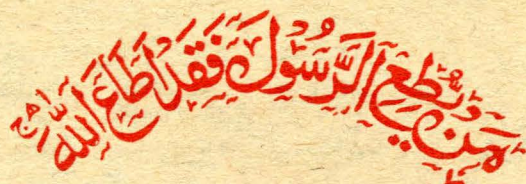 مَن يُطِعِ الرَّسُوْلَ فَقَدْ اَطَاعَ اللّٰهَ